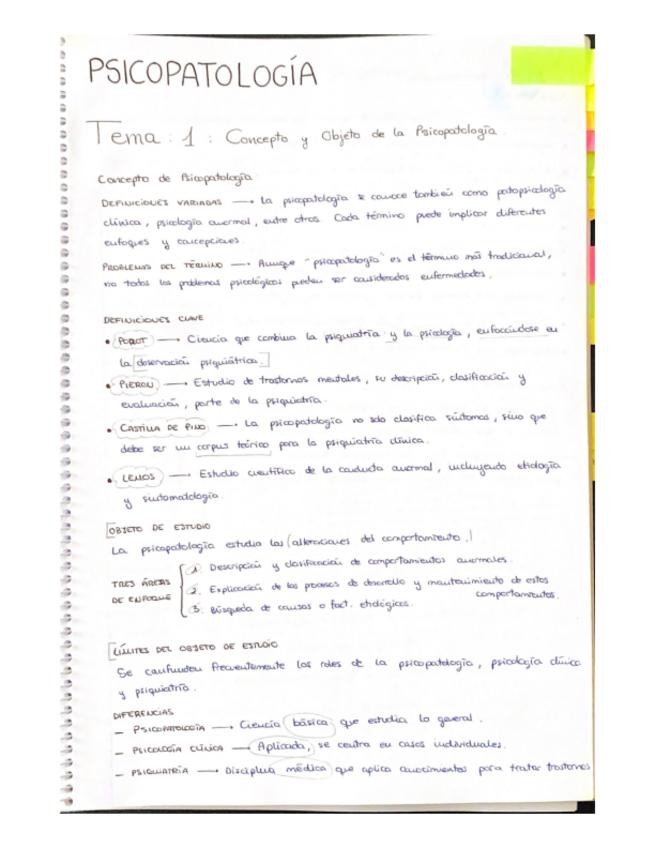 PSICOPATOLOGÍA
Tema : 1 : Concepto y Objeto de la Psicopatología.
Concepto de Psicopatología
DEFINICIONES VARIADAS → La psicopatología se conoce también como patopsicología
clínica, psicología anormal, entre otros. Cada término puede implicar diferentes
enfoques y concepciones.
PROBLEMAS DEL TÉRMINO → Aunque "psicopatología" es el término más tradicional,
no todos los problemas psicológicos pueden ser considerados enfermedades.
DEFINICIONES CLAVE
• POROT → Ciencia que combina la psiquiatría y la psicología, enfocándose en
la [observación psiquiátrica.]
• PIERON → Estudio de trastornos mentales, su descripción, clasificación y
evaluación, parte de la psiquiatría.
• CASTILLA DE PINO → La psicopatología no solo clasifica síntomas, sino que
debe ser un corpus teórico para la psiquiatría clínica.
• LEMOS → Estudio científico de la conducta anormal, incluyendo etiología
y sintomatología.
OBJETO DE ESTUDIO
La psicopatología estudia las (alteraciones del comportamiento.)
TRES ÁREAS DE ENFOQUE
1. Descripción y clasificación de comportamientos anormales.
2. Explicación de los procesos de desarrollo y mantenimiento de estos
comportamientos.
3. Búsqueda de causas o fact. etiológicos.
LÍMITES DEL OBJETO DE ESTUDIO
Se confunden frecuentemente los roles de la psicopatología, psicología clínica
y psiquiatría.
DIFERENCIAS
– PSICOPATOLOGÍA → Ciencia básica que estudia lo general.
– PSICOLOGÍA CLÍNICA → Aplicada, se centra en casos individuales.
– PSIQUIATRÍA → Disciplina médica que aplica conocimientos para tratar trastornos